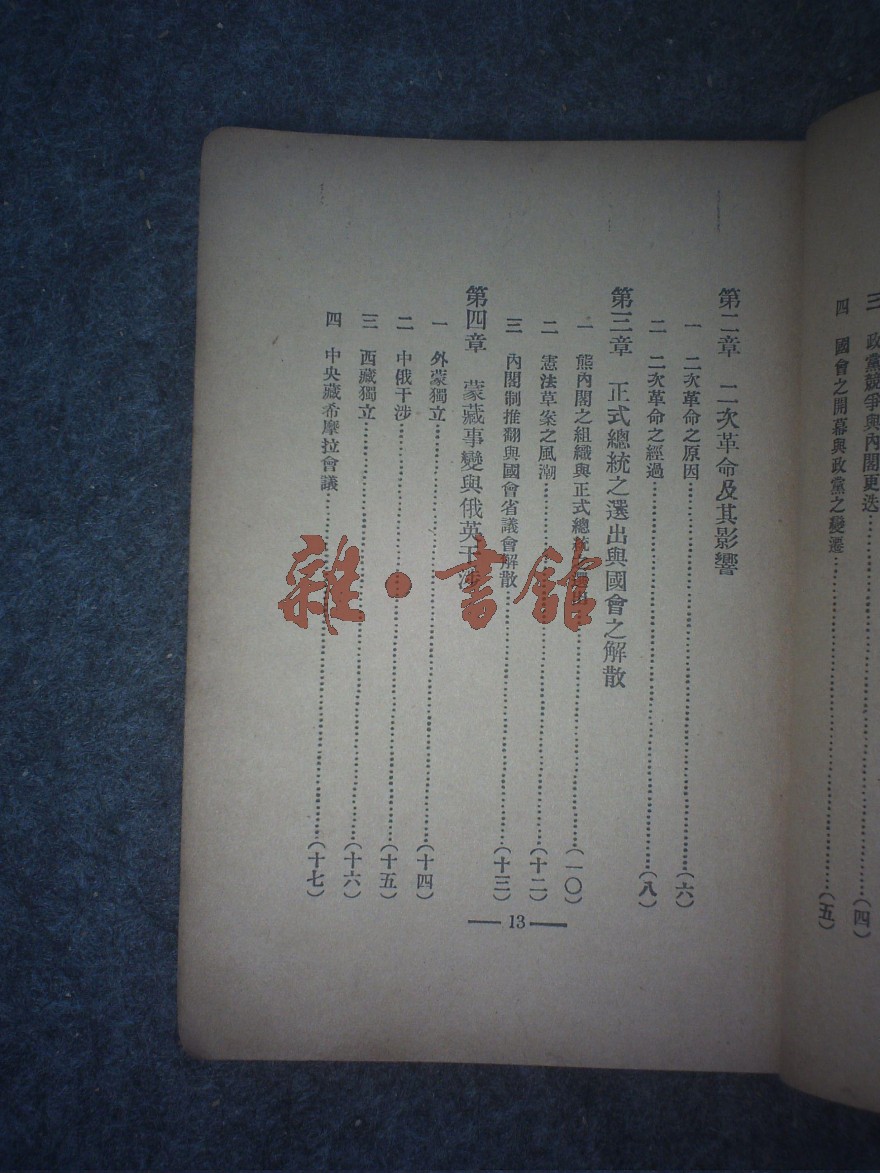 三 政黨競爭與內閣更迭……(四)
四 國會之開幕與政黨之變遷……(五)
第二章 二次革命及其影響
一 二次革命之原因……(六)
二 二次革命之經過……(八)
第三章 正式總統之選出與國會之解散
一 熊內閣之組織與正式總……(一〇)
二 憲法草案之風潮……(十二)
三 內閣制推翻與國會省議會解散……(十三)
第四章 蒙藏事變與俄英干涉
一 外蒙獨立……(十四)
二 中俄干涉……(十五)
三 西藏獨立……(十六)
四 中央藏希摩拉會議……(十七)
13
雜·書館